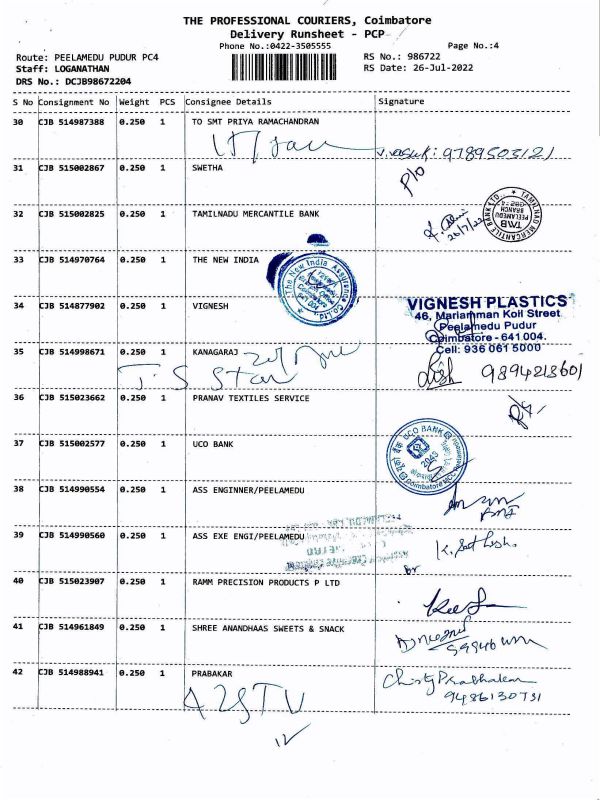 THE PROFESSIONAL COURIERS, Coimbatore
Delivery Runsheet - PCP
Phone No.:0422-3505555
Page No.:4
Route: PEELAMEDU PUDUR PC4
RS No.: 986722
Staff: LOGANATHAN
RS Date: 26-Jul-2022
DRS No.: DCJB98672204
S No Consignment No Weight PCS Consignee Details Signature
30 CJB 514987388 0.250 1 TO SMT PRIYA RAMACHANDRAN
9789503121
31 CJB 515002867 0.250 1 SWETHA
P/o
32 CJB 515002825 0.250 1 TAMILNADU MERCANTILE BANK
26/7/22
TAMILNAD MERCANTILE BANK LTD.
TMB
PEELAMEDU
BRANCH
33 CJB 514970764 0.250 1 THE NEW INDIA
The New India Assurance Co.Ltd.
34 CJB 514877902 0.250 1 VIGNESH
VIGNESH PLASTICS
46, Mariamman Koil Street
Peelamedu Pudur
Coimbatore - 641 004.
Cell: 936 061 5000
35 CJB 514998671 0.250 1 KANAGARAJ
T. S Star
9894213601
36 CJB 515023662 0.250 1 PRANAV TEXTILES SERVICE
37 CJB 515002577 0.250 1 UCO BANK
UCO BANK
2043
38 CJB 514990554 0.250 1 ASS ENGINNER/PEELAMEDU
39 CJB 514990560 0.250 1 ASS EXE ENGI/PEELAMEDU
40 CJB 515023907 0.250 1 RAMM PRECISION PRODUCTS P LTD
41 CJB 514961849 0.250 1 SHREE ANANDHAAS SWEETS & SNACK
42 CJB 514988941 0.250 1 PRABAKAR
Christy Prabhakar
9486130731
12